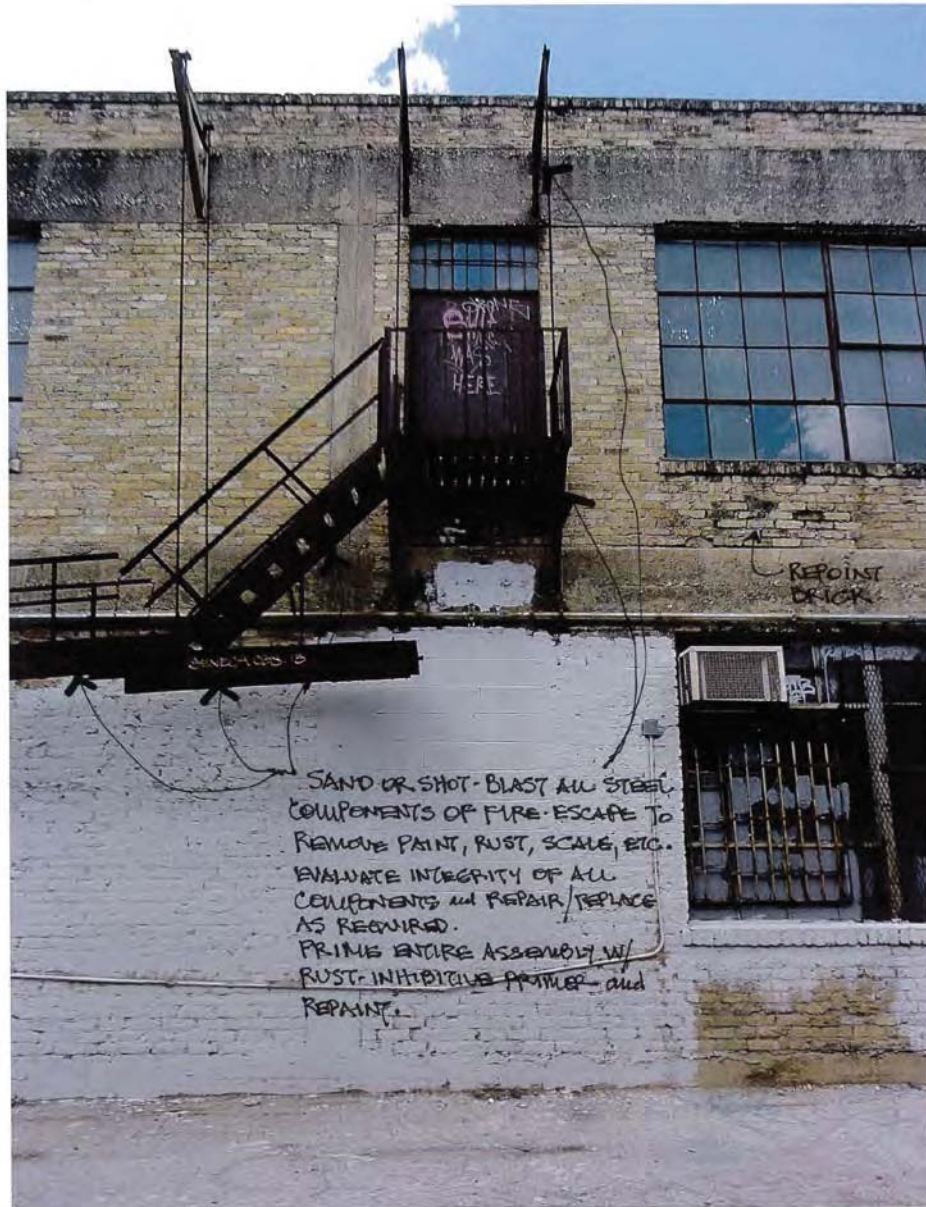 HERE
REPOINT
BRICK
SAND OR SHOT-BLAST ALL STEEL
COMPONENTS OF FIRE-ESCAPE TO
REMOVE PAINT, RUST, SCALE, ETC.
EVALUATE INTEGRITY OF ALL
COMPONENTS and REPAIR/REPLACE
AS REQUIRED.
PRIME ENTIRE ASSEMBLY W/
RUST-INHIBITIVE PRIMER and
REPAINT.